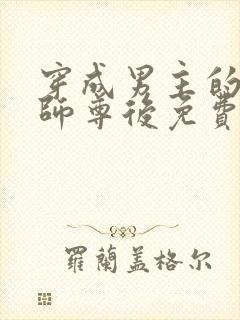 穿成男主的
師尊後免費
羅蘭蓋格尔